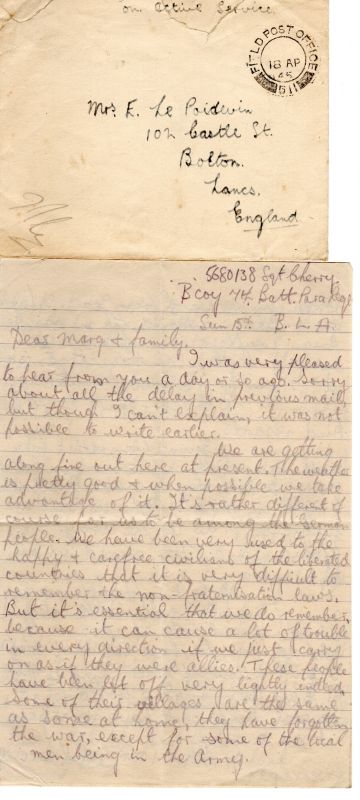 on Active Service
FIELD POST OFFICE
18 AP
45
Mrs E. Le Poidevin
102 Castle St.
Bolton.
Lancs.
England
5680138 Sgt Cherry
B coy 7th. Batt. Para Regt
Sun 15th B. L. A.
Dear Marg & family,
I was very pleased
to hear from you a day or so ago. Sorry
about all the delay in previous mail
but though I can't explain, it was not
possible to write earlier.
We are getting
along fine out here at present. The weather
is pretty good & when possible we take
advantage of it. It's rather different of
course for us to be among the German
people. We have been very used to the
happy & carefree civilians of the liberated
countries that it is very difficult to
remember the non-fraternisation laws.
But it's essential that we do remember,
because it can cause a lot of trouble
in every direction if we just carry
on as if they were allies. These people
have been let off very lightly indeed,
some of their villages are the same
as some at home, they have forgotten
the war, except for some of the local
men being in the Army.